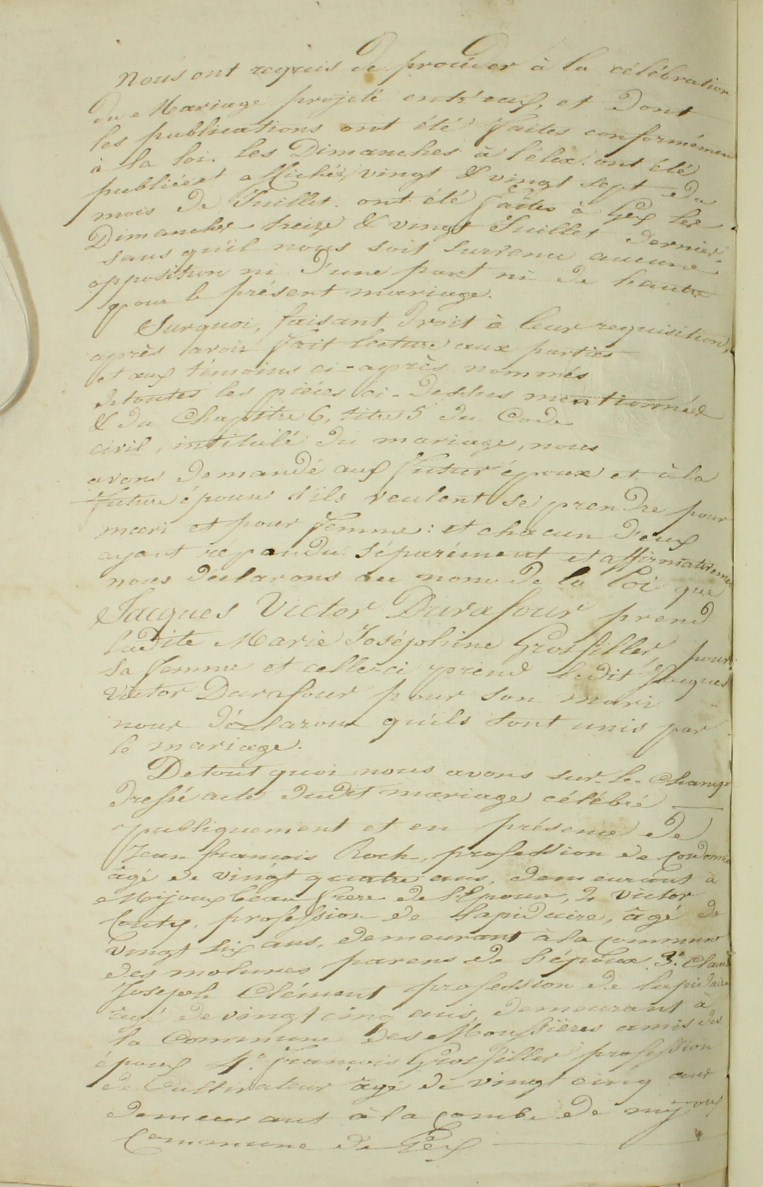 Nous ont requis de procéder à la célébration
du Mariage projeté entr'eux, et dont
les publications ont été faites conformément
à la loi. les Dimanches à l'élex. ont été
publiées et affichées vingt & vingt sept du
mois de Juillet. ont été faites à Gex les
Dimanches treize & vingt Juillet dernier
sans quil nous soit survenu aucune
opposition ni d'une part ni de l'autre
pour le présent mariage.
Surquoi, faisant Droit à leur requisition,
après avoir fait lecture aux parties
et aux témoins ci-après nommés
de toutes les pièces ci-dessus mentionnées
& du Chapitre 6, titre 5 du Code
civil, intitulé du mariage, nous
avons demandé aux futur époux et à la
future épouse s'ils veulent se prendre pour
mari et pour femme : et chacun d'eux
ayant répondu séparément et affirmativement
nous déclarons au nom de la loi que
Jacques Victor Durafour prend
ladite Marie Joséphine Grosfiller pour
Sa femme et celle-ci prend ledit Jacques
Victor Durafour pour son mari
nous déclarons qu'ils sont unis par
le mariage.
De tout quoi nous avons sur-le-champ
dressé acte dudit mariage célébré
publiquement et en présence de
Jean françois Roch, profession de Cordonnier
âgé de vingt quatre ans, demeurant à
Mijoux beau frère de l'Epoux, 2° Victor
profession de lapidaire, âgé de
vingt six ans, demeurant à la Commune
des molunes parens de l'époux, 3° Claude
Joseph Clément profession de lapidaire
âgé de vingt cinq ans, demeurant à
la Commune des Moussières amis des
époux 4° François Grosfiller profession
de Cultivateur âgé de vingt cinq ans
demeurant à la Combe de mijoux
Commune de Gex